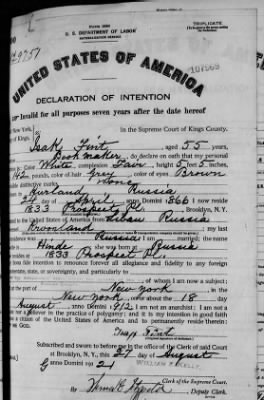 TRIPLICATE
U. S. DEPARTMENT OF LABOR
NATURALIZATION SERVICE
107569
UNITED STATES OF AMERICA
DECLARATION OF INTENTION
Invalid for all purposes seven years after the date hereof
New York, In the Supreme Court of Kings County.
of Kings,
I, Isak Fint, aged 55 years,
occupation Book maker, do declare on oath that my personal
Color White, complexion Fair, height 5 feet 5 inches,
142 pounds, color of hair Grey, color of eyes Brown
visible distinctive marks None
Kurland Russia
24 day of April, anno Domini 1866; I now reside
at 1833 Prospect Pl., Brooklyn, N.Y.
to the United States of America from Libau Russia
Kroonland; my last
residence was Russia; I am married; the name
Hinde; she was born at Russia
1833 Prospect Pl.
bona fide intention to renounce forever all allegiance and fidelity to any foreign
potentate, state, or sovereignty, and particularly to
of whom I am now a subject;
at the port of New York, in the
New York, on or about the 18 day
August, anno Domini 1912; I am not an anarchist; I am not a
nor a believer in the practice of polygamy; and it is my intention in good faith
a citizen of the United States of America and to permanently reside therein:
GOD.
Isaak Fint
Subscribed and sworn to before me in the office of the Clerk of said Court
at Brooklyn, N. Y., this 24 day of August
anno Domini 1921
WILLIAM F. KELLY,
Clerk of the Supreme Court.
By
Deputy Clerk.